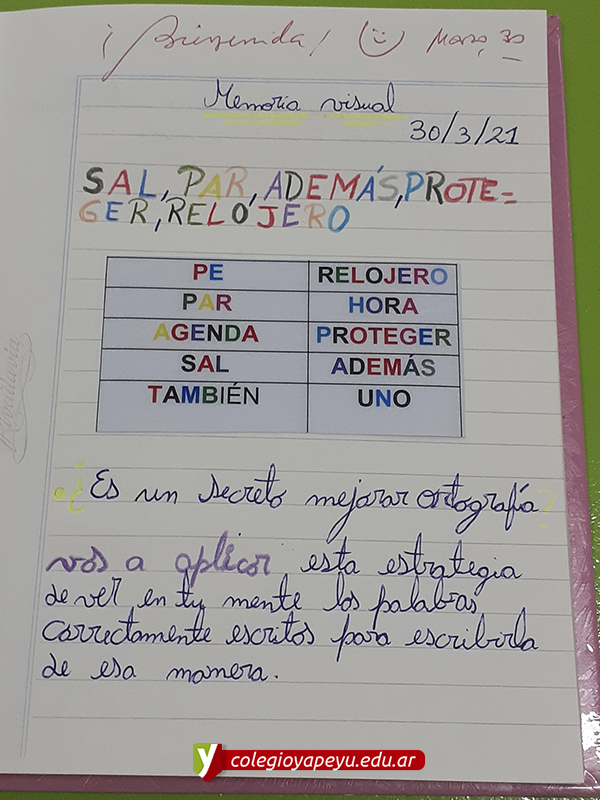 ¡Bienvenida! Marzo 30
Memoria visual
30/3/21
SAL, PAR, ADEMÁS, PROTE=
GER, RELOJERO
PE RELOJERO
PAR HORA
AGENDA PROTEGER
SAL ADEMÁS
TAMBIÉN UNO
¿Es un secreto mejorar ortografía?
vas a aplicar esta estrategia
de ver en tu mente las palabras
correctamente escritas para escribirla
de esa manera.
Rivadavia
y colegioyapeyu.edu.ar